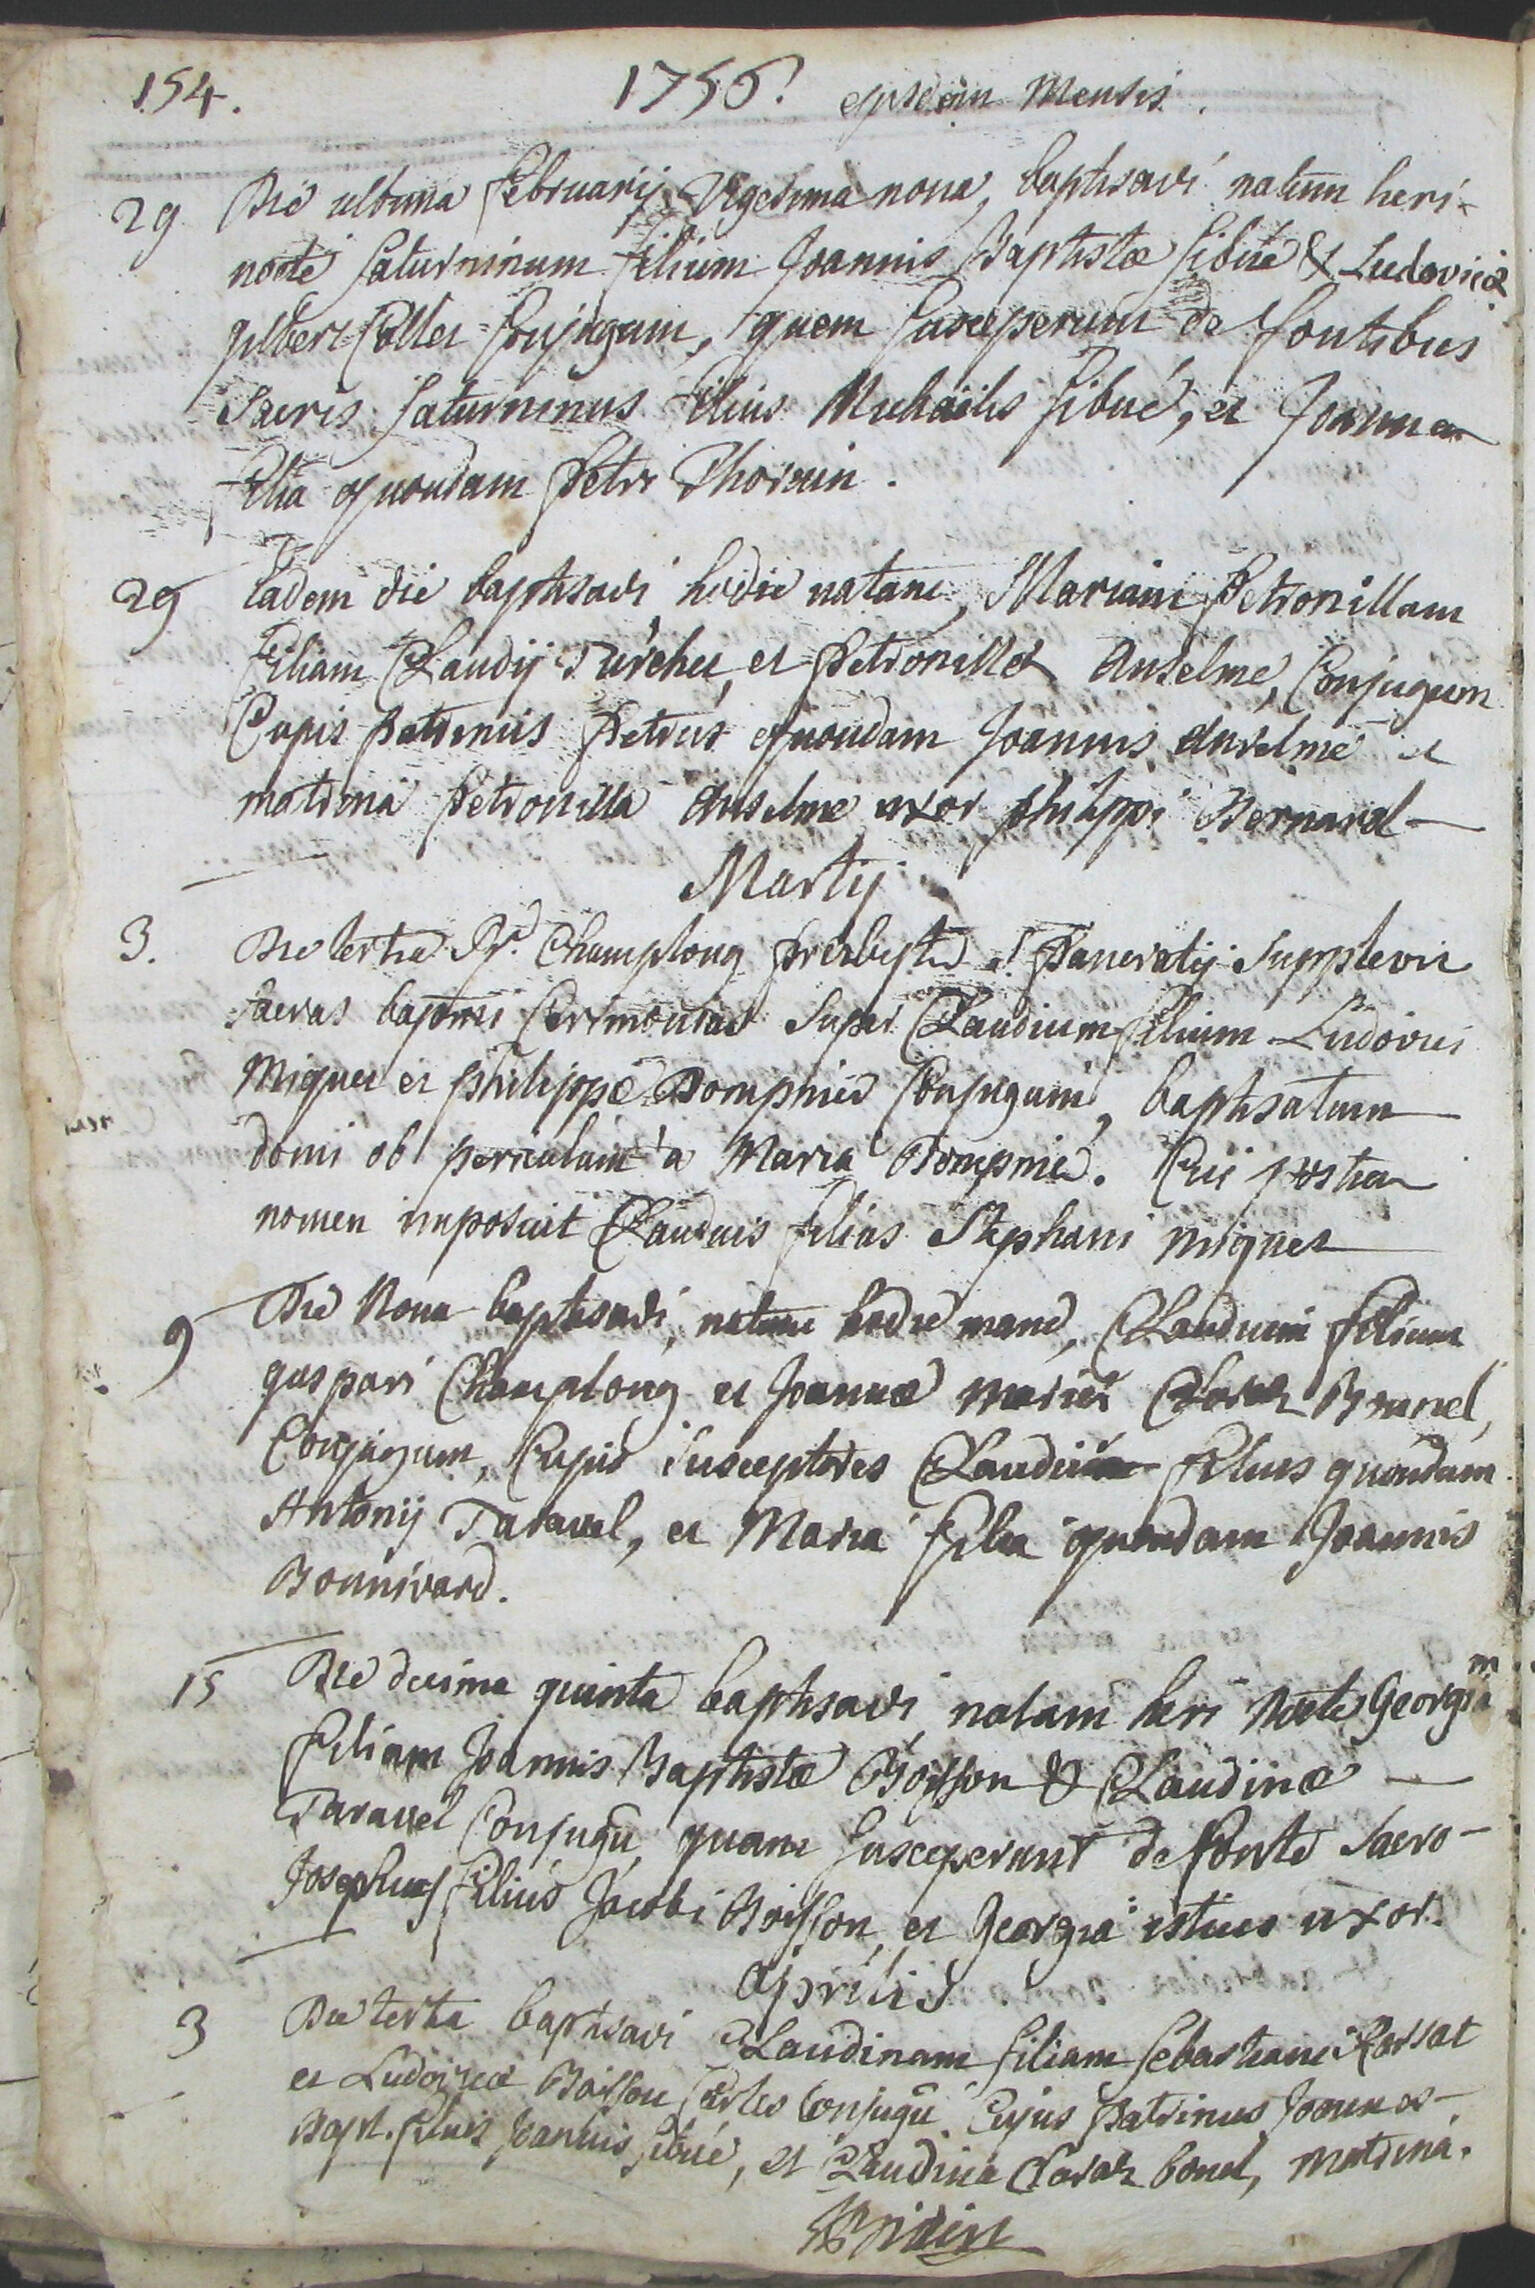 154. 1756. ejusdem Mensis.
29 Die ultima februarij Vigesima nona, baptisavi natum heri
nocte Saturninum filium Joannis Baptistæ Sibué & Ludovicæ
gilbert Collet Conjugum, quem Susceperunt de fontibus
Sacris Saturninus filius Michaëlis Sibué, et Joanna
filia quondam Petri Thorain.
29 Eadem die baptisavi hodie natam, Mariam Petronillam
filiam Claudij Turchet, et Petronillæ Anselme, Conjugum
Cujus patrinus Petrus quondam Joannis Anselme et
matrina Petronilla Anselme uxor philippi Bernard
Martij
3. Die tertia Rd. Champlong presbyter S. Pancratij Supplevit
Sacras baptismi Cerimonias Super Claudium filium Ludovici
Miquet et philippæ Dompnier Conjugum, baptisatum
domi ob periculum a Maria Dompnier. Cui postea
nomen imposuit Claudius filius Stephani Miquet
9 Die Nona baptisavi, natum hodie mane, Claudium filium
gaspari Champlong et Joannæ Mariæ Claraz Brunel,
Conjugum, Cujus Susceptores Claudius filius quondam
Antonij Taravel, et Maria filia quondam Joannis
Bonnivard.
15 Die decima quinta baptisavi, natam heri Nocte Georgiam
filiam Joannis Baptistæ Boisson & Claudinæ
Taravel Conjugũ, quam Susceperunt de fonte Sacro
Josephus filius Jacobi Boisson, et Georgia istius uxor.
Aprilis
3 Die tertia baptisavi Claudinam filiam Sebastiani
et Ludovicæ Boisson Carles Conjugũ Cujus Patrinus Joannes
Bapt. filius Joannis Sibué, et Claudina Claraz bonel, Matrina.